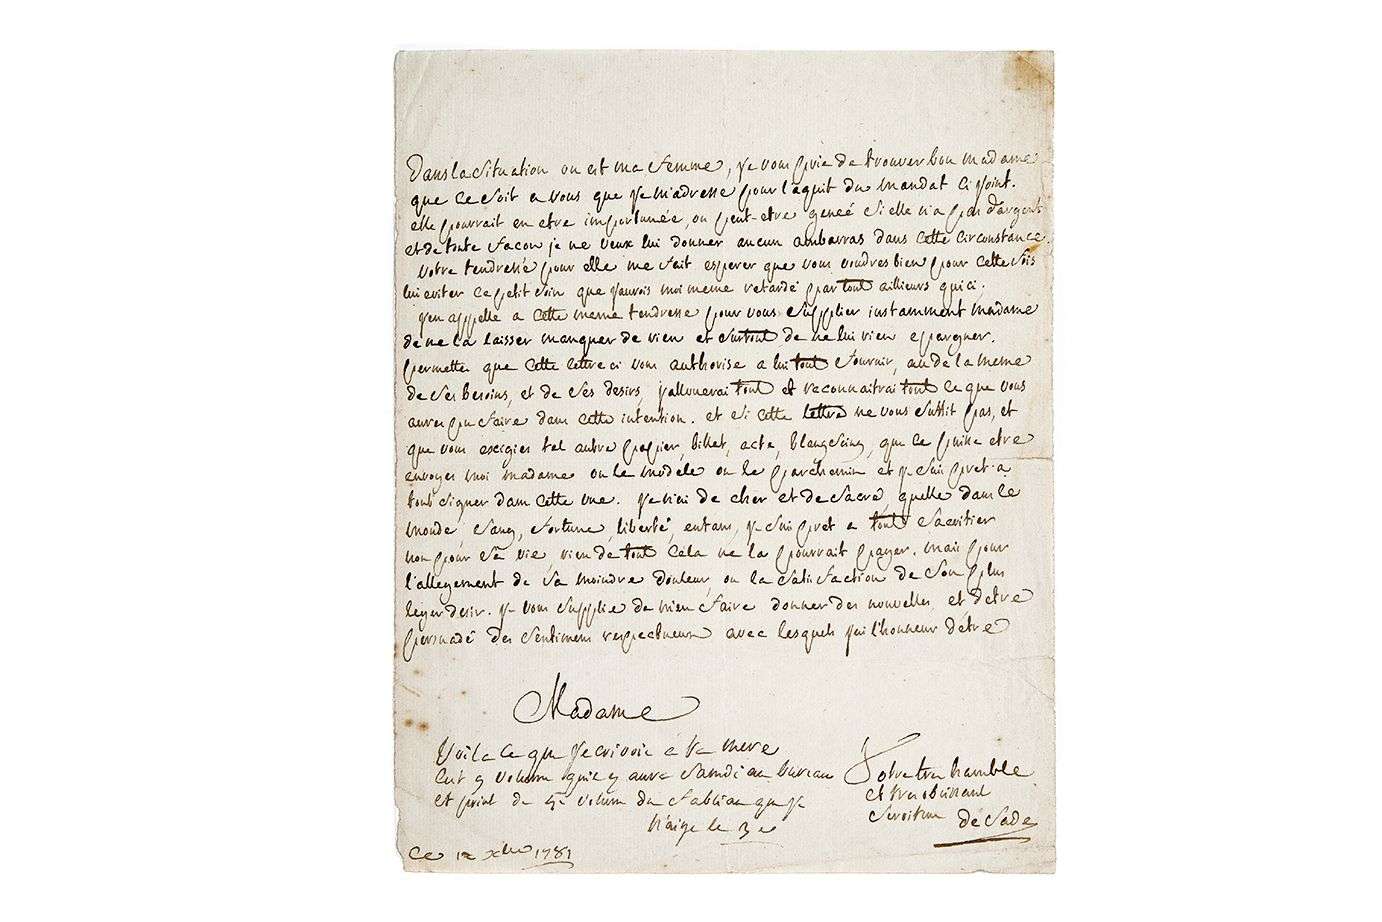 Dans la situation ou est ma femme, je vous prie de trouver bon madame
que ce soit a vous que je m'adresse pour l'aquit du mandat ci joint.
elle pourrait en etre importunée, ou peut-etre genée si elle n'a pas d'argent
et de toute facon je ne veux lui donner aucun ambarras dans cette circonstance.
votre tendresse pour elle me fait esperer que vous voudres bien pour cette fois
lui eviter ce petit soin que j'aurois moi meme retardé par tout aillieurs qu'ici.
j'en appelle a cette meme tendresse pour vous supplier instamment madame
de ne la laisser manquer de rien et surtout de ne lui rien epargner.
permettes que cette lettre ci vous authorise a lui tout fournir, au de la meme
de ses besoins, et de ses desirs, j'allouerai tout et reconnaitrai tout ce que vous
aures pu faire dans cette intention. et si cette lettre ne vous suffit pas, et
que vous exigies tel autre papier, billet, acte, blangseing, que ce puisse etre
envoyes moi madame ou le modele ou le parchemin et je suis pret a
tout signer dans cette vue. je n'ai de cher et de sacré, qu'elle dans le
monde, sang, fortune, liberté, enfans, je suis pret a tout sacrifier
non pour sa vie, rien de tout cela ne la pourrait payer. mais pour
l'allegement de sa moindre douleur, ou la satisfaction de son plus
leger desir. je vous supplie de m'en faire donner des nouvelles, et d'etre
persuadé des sentimens respectueux avec lesquels j'ai l'honneur d'etre
Madame
Voila ce que j'ecrivois a ta mere
volum qu'il y aura samdi au bureau
et point de 5e volum du que je
n'aige le 3e
Votre tres humble
et tres obeissant
serviteur de Sade
Ce 12 xbre 1781